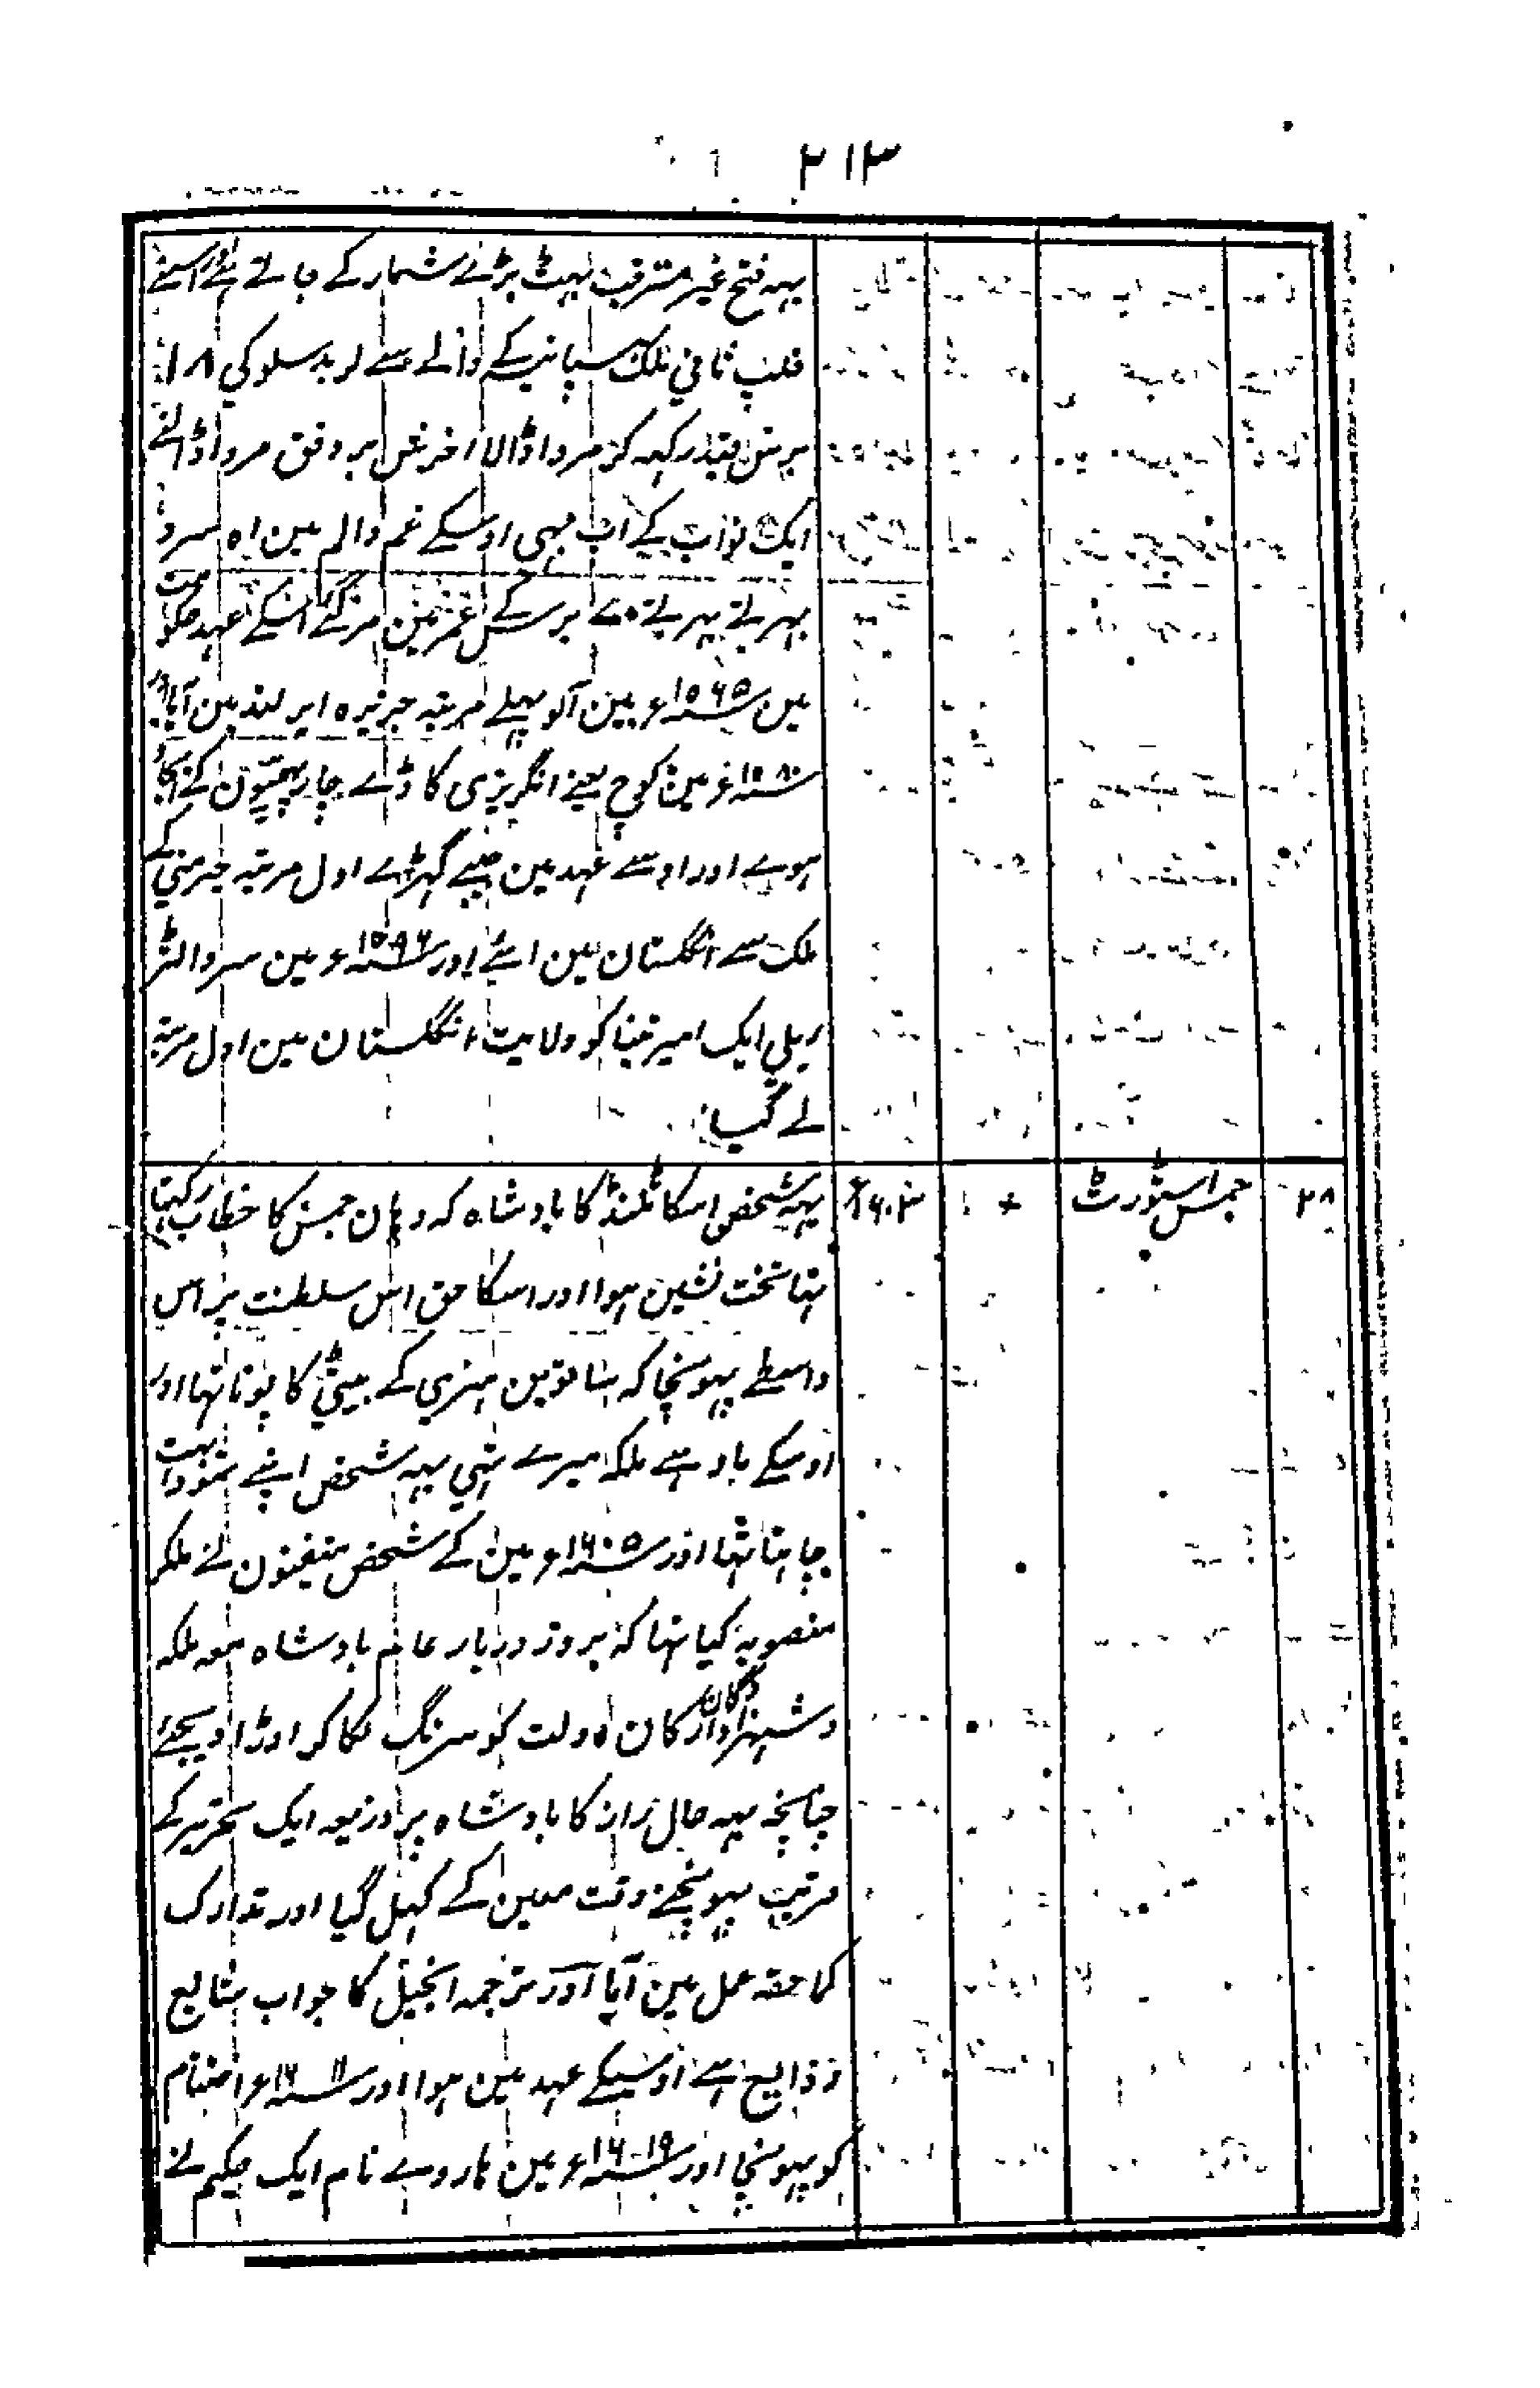 ۲۱۳
یہہ فتح غیر مترقب بہٹ بڑنے شمار کے جاتے ہے اسنے
فلپ ثانی ملک سپانیہ کے والے سے لر بد سلوکی ۱۸
برس قید رکہہ کر مرواڈالا اخرش بر وفق مرواڈالنے
ایک نواب کے اب بہی اوسیکے غم والم مین اہ سرد
بہرتے بہرتے ۷۰ برسکے عمر مین مرگئے اسکے عہد حکومت
مین سنہ ۱۵۶۵ء مین آلو پہلے مرتبہ جزیرہ ایرلند مین آیا اور
سنہ ۱۵۸۰ء مین کوچ یعنے انگریزی گاڈے چار پہیّون کے ایجاد
ہوے اور اوسے عہد مین جیبے گہڑے اول مرتبہ جرمنی کے
ملک سے انگلستان مین ائے اور سنہ ۱۵۸۶ء مین سر والٹر
ریلی ایک امیر تنباکو ولایت انگلستان مین اول مرتبہ
لے گیا
۲۸ جمس اسٹورٹ + سنہ ۱۶۰۳ء یہہ شخص اسکاٹلنڈ کا بادشاہ کہ وہان جمس کا خطاب رکہتا
تہا تخت نشین ہوا اور اسکا حق اس سلطنت پر اس
واسطے پہونچا کہ ساتوین ہنری کے بیٹی کا پوتا تہا اور
اوسکے باد سے ملکہ میرے تہی یہہ شخص اپنے نمود بہت
چاہتا تہا اور سنہ ۱۶۰۵ء مین کے شخص متفنون نے ملکر
منصوبہ کیا تہا کہ بروز دربار عام بادشاہ معہ ملکہ
وشہزادگان وارکان دولت کو سرنگ لگا کر اوڑا دیجئے
چنانچہ یہہ حال راز کا بادشاہ پر ذریعہ ایک تحریر کے
قریب پہونچنے وقت معین کے کہل گیا اور تدارک
کماحقہ عمل مین آیا اور ترجمہ انجیل کا جواب شایع
وذایع ہے اوسیکے عہد مین ہوا اور سنہ ۱۶۱۱ء اختتام
کو پہونچا اور سنہ ۱۶۱۹ء مین ہاروے نام ایک حکیم نے